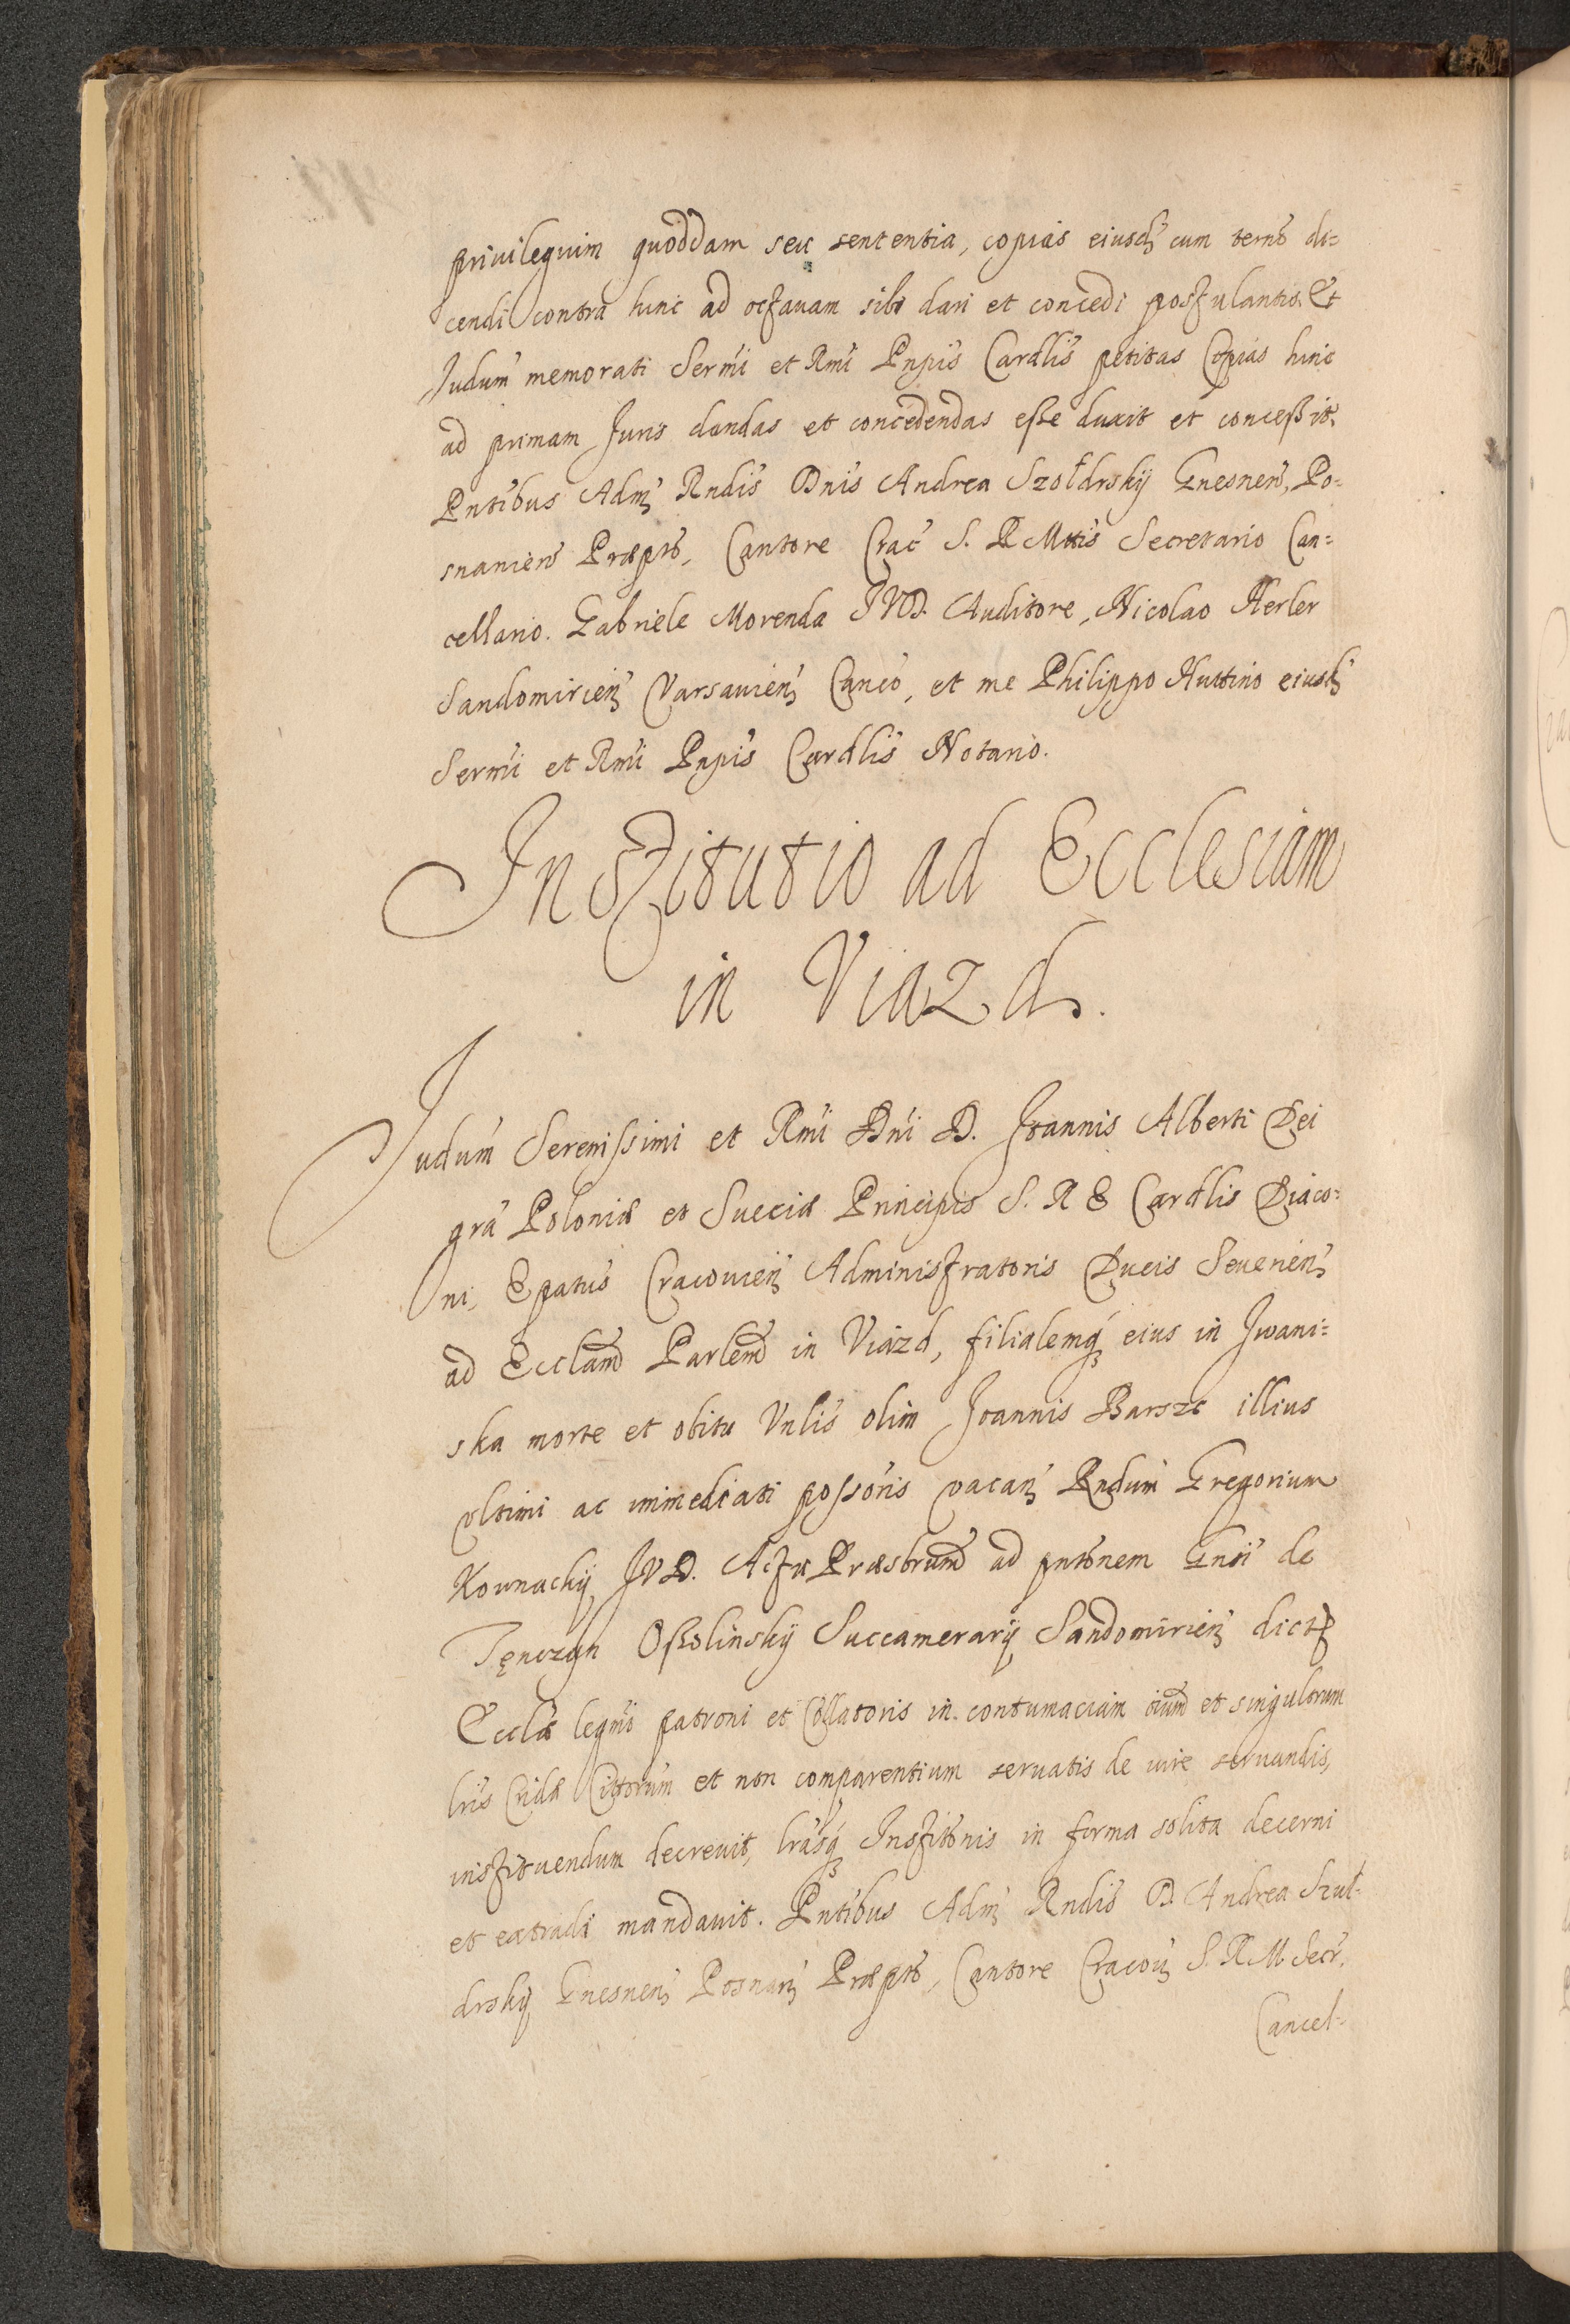 privilegium quoddam seu sententia, copias eiusd cum termo di=
cendi contra hinc ad octavam sibi dari et concedi postulantis. Et
Iudum memorati Sermi et Rmi Pnpis Cardlis petitas Copias hinc
ad primam Juris dandas et concedendas esse duxit et concessit.
Pntibus Adm Rndis Dnis Andrea Szołdrskij Gnesnen, Po=
snanien Præpto, Cantore Crac S. R Mttis Secretario Can=
cellario. Gabriele Morenda JVD. Auditore, Nicolao Herler
Sandomirien Varsavien Canco, et me Philippo Huttino eiusd
Sermi et Rmi Pnpis Cardlis Notario.
Institutio ad Ecclesiam
in Viazd.
Iudum Serenissimi et Rmi Dni D. Joannis Alberti Dei
gra Poloniæ et Sueciæ Principis S. R E Cardlis Diaco=
ni, Epatus Cracovien Administratoris Ducis Severien
ad Ecclam Parlem in Viazd, filialemq eius in Jwani=
ska morte et obitu Vnlis olim Joannis Barszc illius
vltimi ac immediati possoris vacan Rndum Gregorium
Kownackij JVD. Actu Præsbrum ad pntonem Gnsi de
Tęnczyn Ossolinskij Succamerarij Sandomirien dictæ
Ecclæ legmi patroni et Collatoris in contumaciam oium et singulorum
lris Cridæ Cittorum et non comparentium servatis de iure servandis,
instituendum decrevit, lrasq Institonis in forma solita decerni
et extradi mandavit. Pntibus Adm Rndis D. Andrea Szoł-
drskij Gnesnen Posnan Præpto, Cantore Cracov S. R. M. Secr.
Cancel=